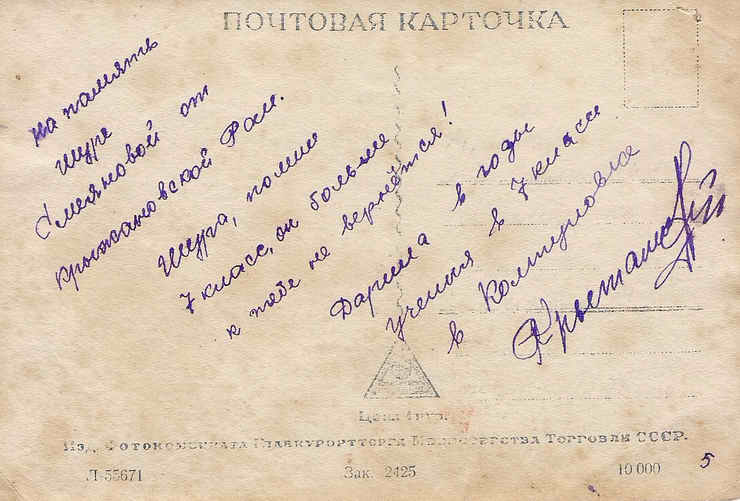 ПОЧТОВАЯ КАРТОЧКА
На память
Шуре
Смеяновой от
Крыжановской Раи.
Шура, помни
7 класс, он больше
к тебе не вернётся!
Дарила в годы
учения в 7 классе
в
Цена 1 руб.
Изд. Фотокомбината Главкурортторга Министерства Торговли СССР.
Л-55671
Зак. 2425
10 000
5